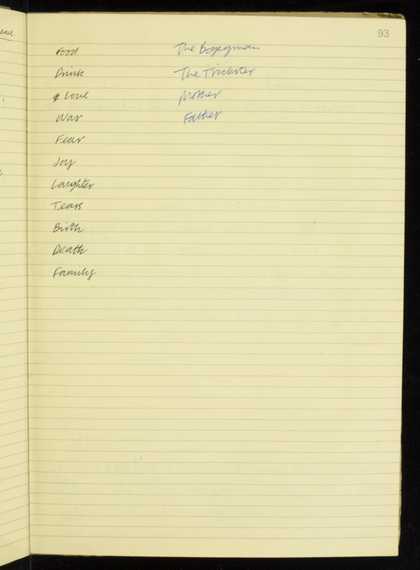 93
Food
Drink
& Love
War
Fear
Joy
Laughter
Tears
Birth
Death
Family
The Bogeyman
The Trickster
Mother
Father